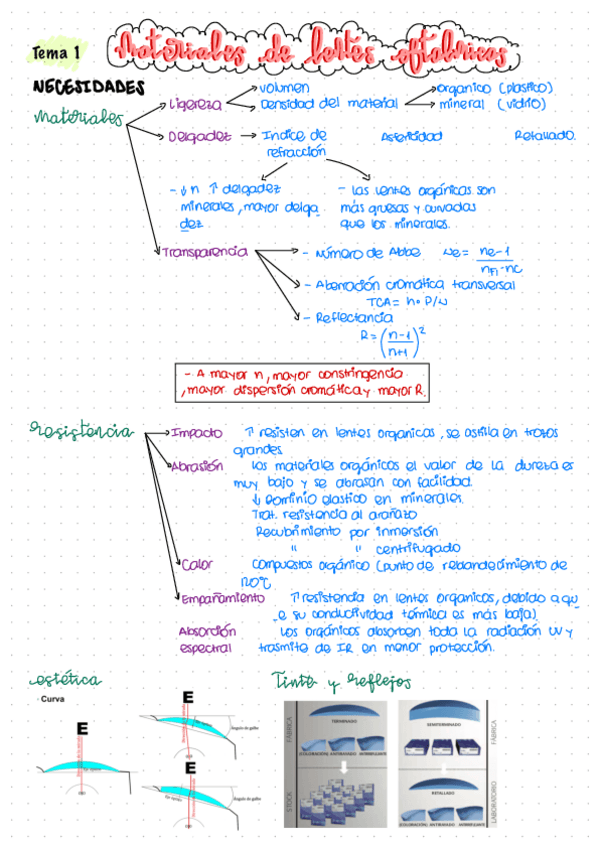 Tema 1
Materiales de lentes oftálmicas
NECESIDADES
Materiales
Ligereza
volumen
Densidad del material
organico (plastico)
mineral (vidrio)
Delgadez
Indice de
refracción
Asfericidad
Retallado.
- ↓ n ↑ delgadez
minerales, mayor delga
dez.
- Las lentes orgánicas son
más gruesas y curvadas
que los minerales.
Transparencia
- Número de Abbe
- Aberración cromática transversal
TCA = h · P/ν
- Reflectancia
R = (n-1/n+1)²
- A mayor n, mayor constringencia
, mayor dispersión cromática y mayor R.
Resistencia
Impacto
↑ resisten en lentes organicas, se astilla en trozos
grandes
Abrasión
Los materiales orgánicos el valor de la dureza es
muy bajo y se abrasan con facilidad.
↓ Dominio elastico en minerales.
Trat. resistencia al arañazo
Recubrimiento por inmersión
" " centrifugado
Calor
Compuestos orgánico (punto de
Empañamiento
↑ resistencia en lentes organicos, debido a qu
e su conductividad térmica es más baja)
Absorción
espectral
Los orgánicos absorben toda la radiación UV y
trasmite de IR en menor protección.
estética
· Curva
E
E
E
Ángulo de galbe
Ángulo de galbe
Tinte y reflejos
FÁBRICA
TERMINADO
(COLORACIÓN, ANTIRAYADO, ANTIRREFLEJANTE
STOCK
SEMITERMINADO
FÁBRICA
RETALLADO
(COLORACIÓN), ANTIRAYADO, ANTIRREFLEJANTE
LABORATORIO